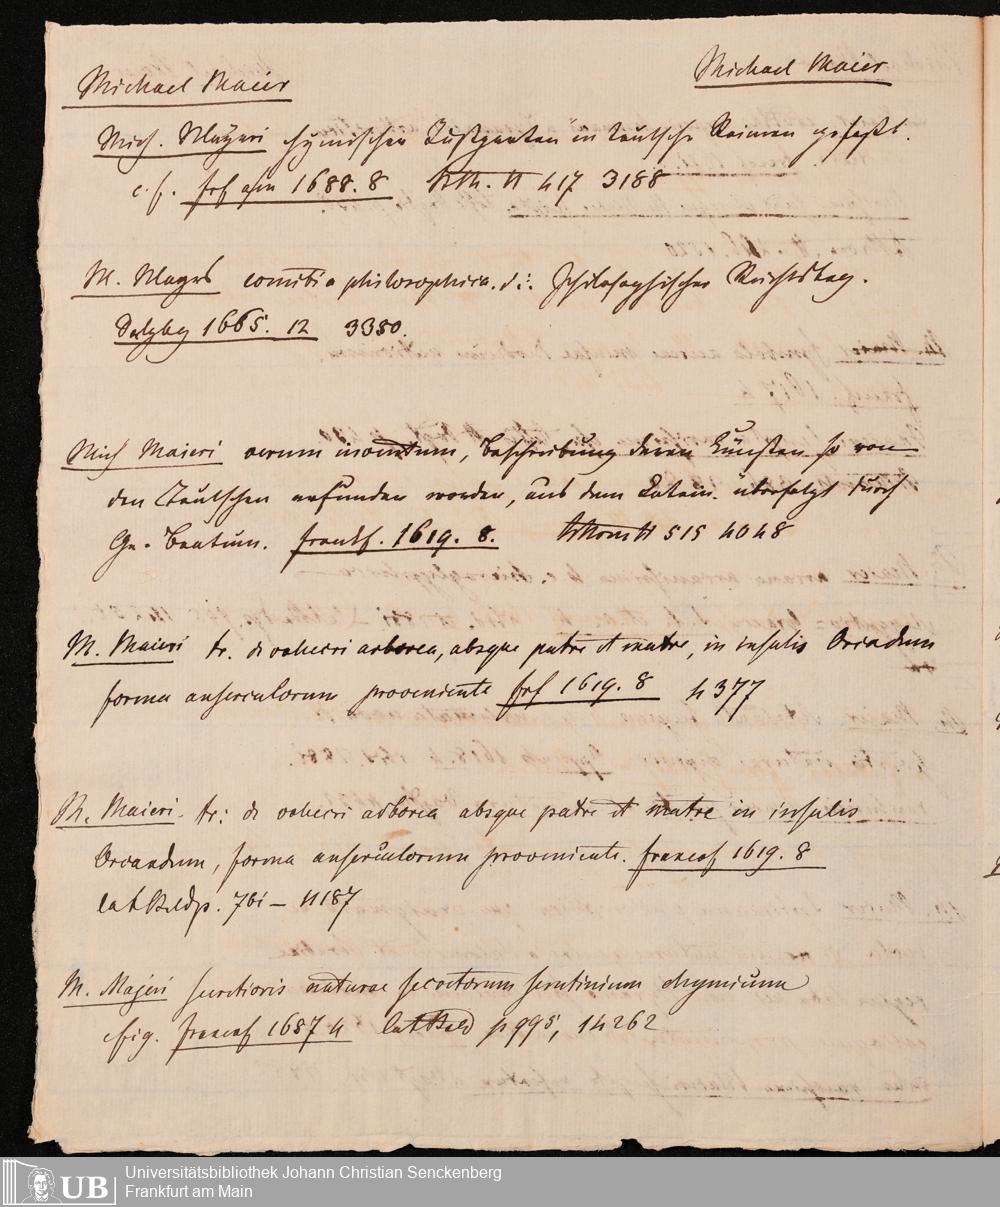 Michael Maier
Michael Maier
Mich. Mayeri chymischer Lustgarten in teutsche Reimen gefaßt.
c. f. frf a/m 1688. 8 417 3188
M. Mayrs comitia philosophica. d. i. philosophischer Reichstag.
Salzbg 1665. 12 3380.
Mich Maieri verum inventum, Beschreibung deren Künsten so von
den Teutschen erfunden worden, aus dem Latein. übersetzt durch
Ge. Beatum. frankf. 1619. 8. 515 4048
M. Maieri tr. de volucri arborea, absque patre et matre, in insulis Orcadum
forma anserculorum proveniente frf 1619. 8 p 377
M. Maieri. tr: de volucri arborea absque patre et matre in insulis
Orcadum, forma anserculorum proveniente. francof 1619. 8
p. 761 – 11187
M. Majeri secretioris naturae secretorum scrutinium chymicum
c fig. francof 1687 4 p 995, 14262
UB Universitätsbibliothek Johann Christian Senckenberg
Frankfurt am Main